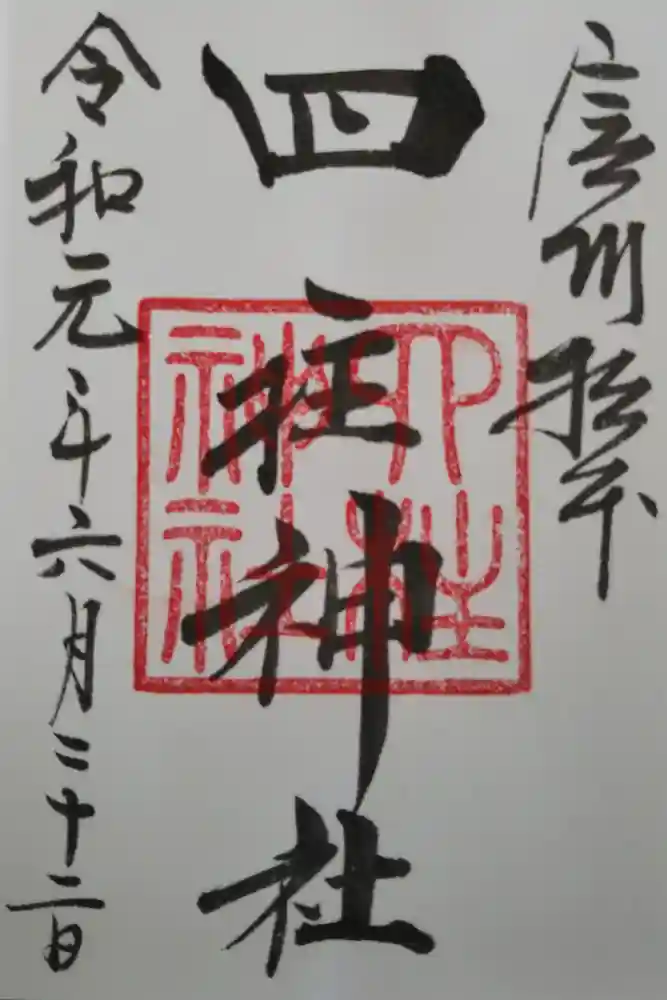 信州松本
四柱神社
令和元年六月二十二日
四柱
神社